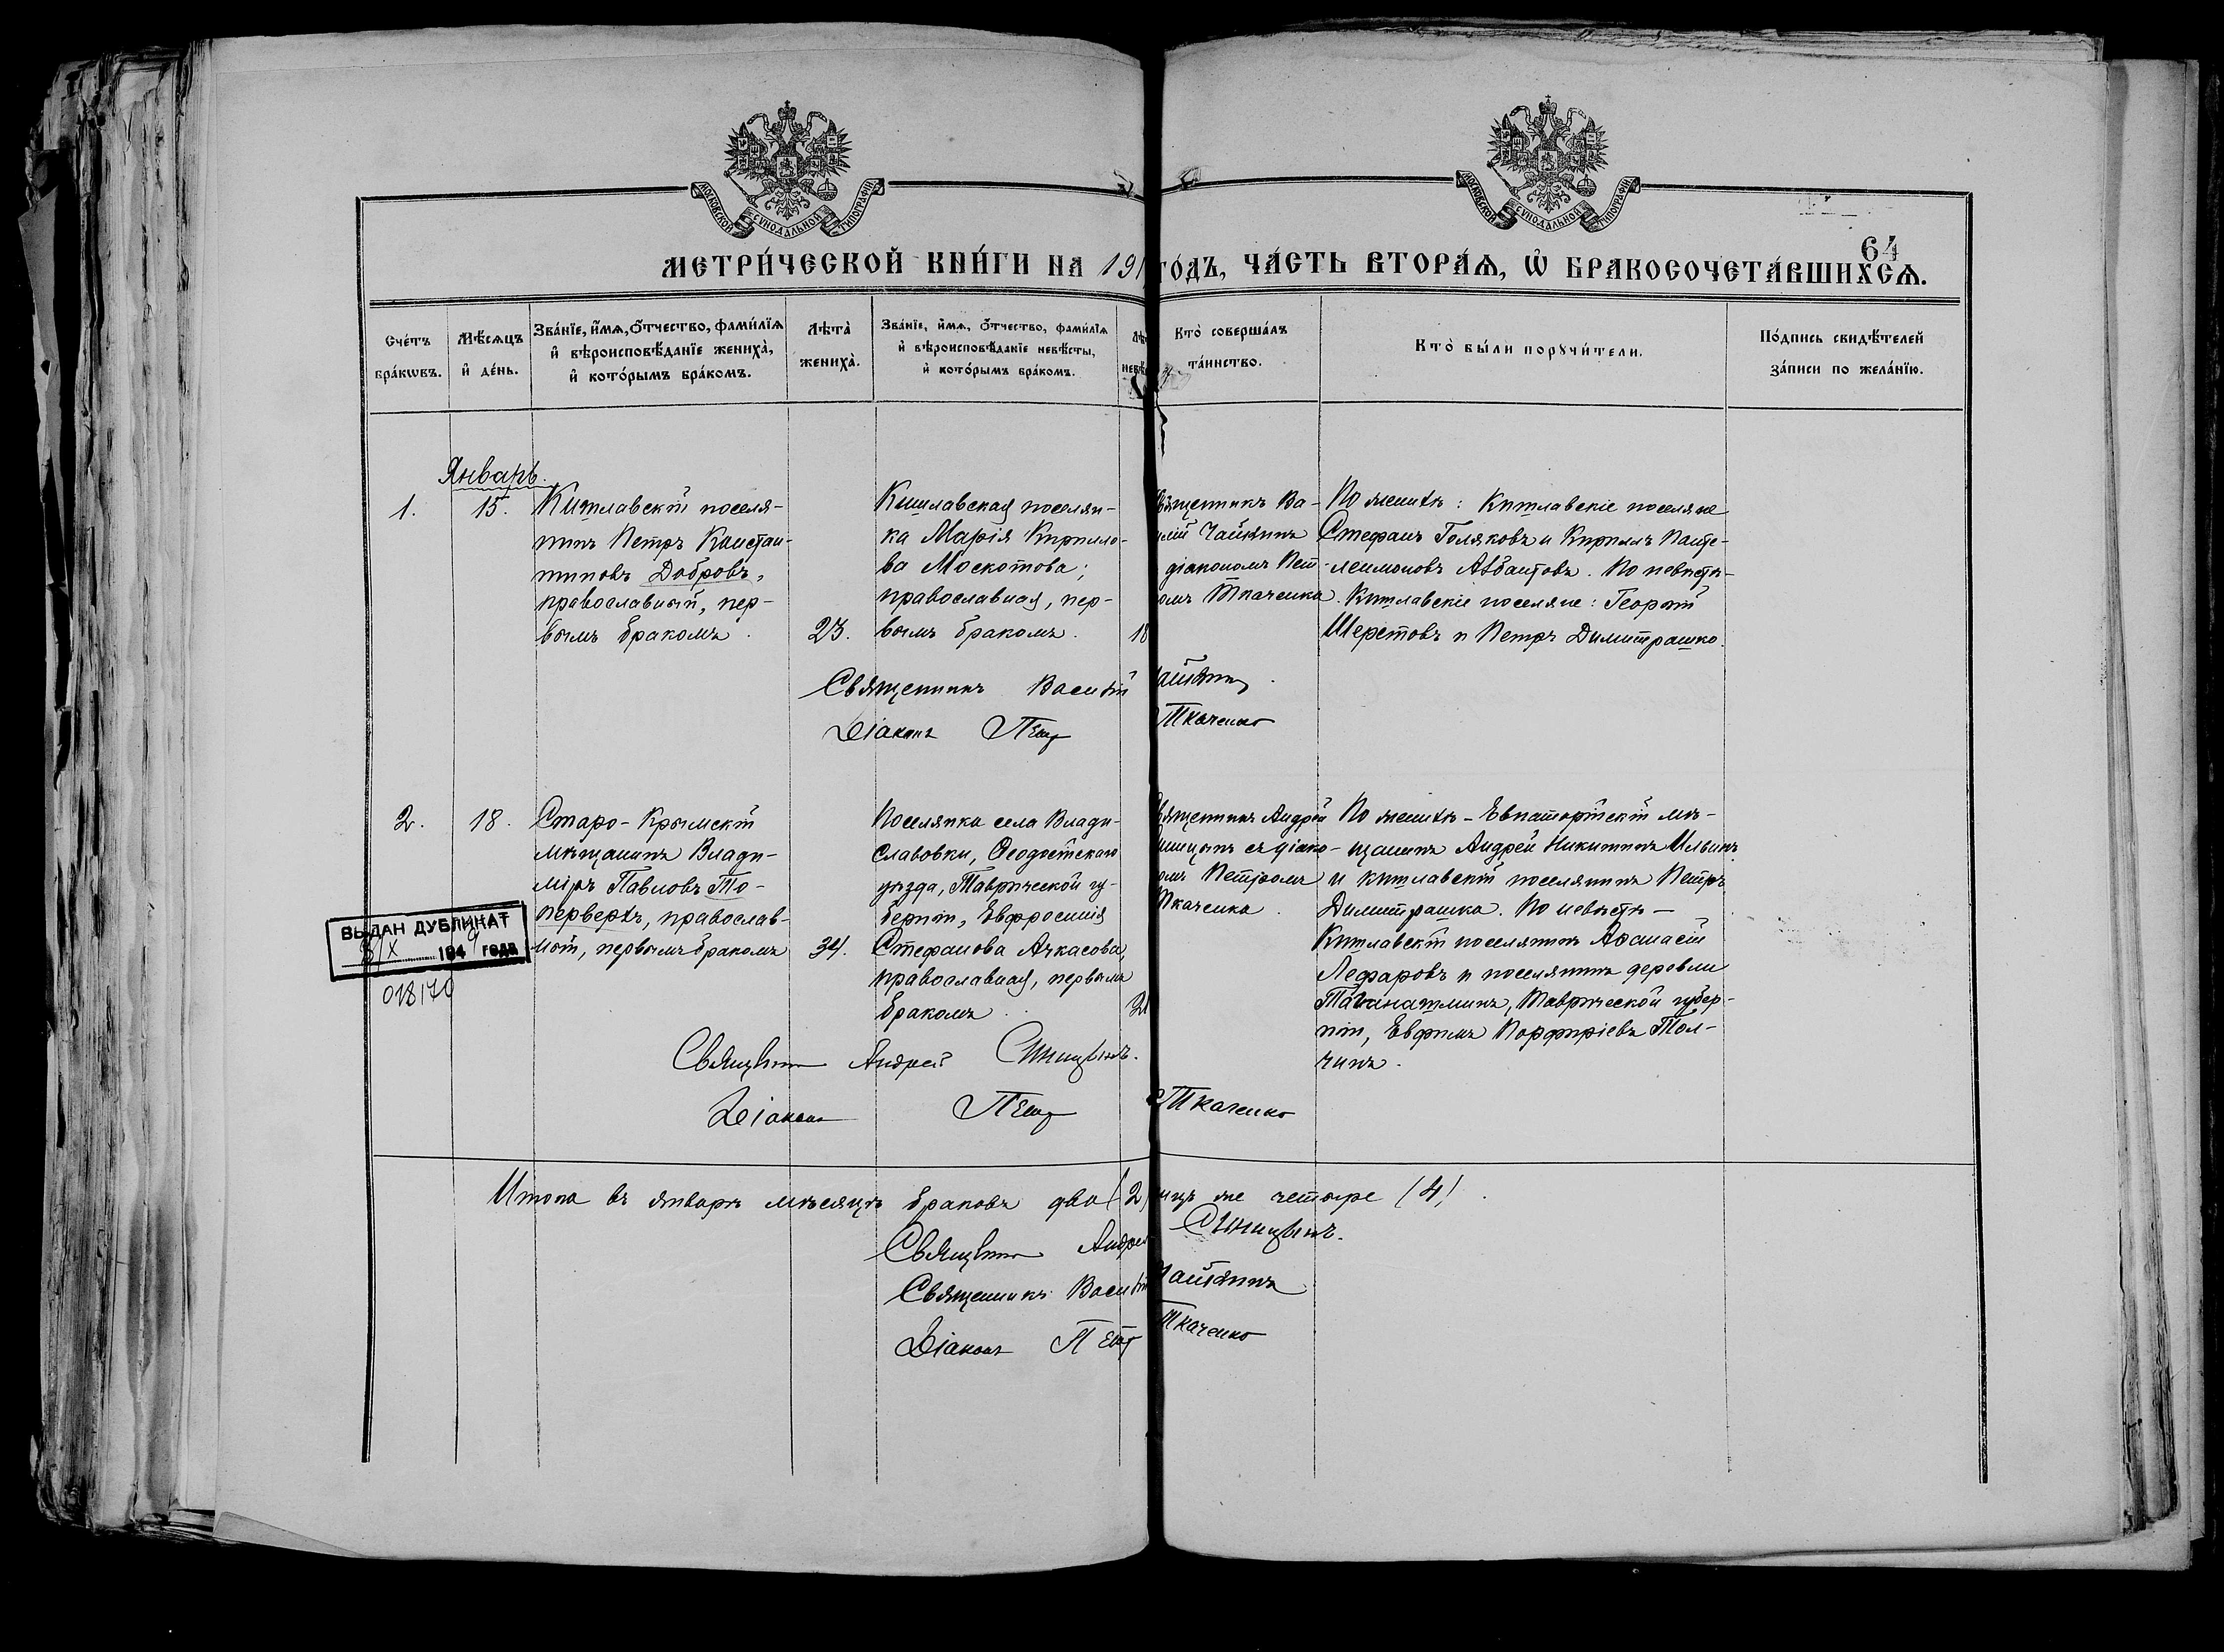 МОСКОВСКОЙ СѴНОДАЛЬНОЙ ТИПОГРАФІИ
МОСКОВСКОЙ СѴНОДАЛЬНОЙ ТИПОГРАФІИ
64
МЕТРИ́ЧЕСКОЙ КНИ́ГИ НА 191
ГО́ДЪ, ЧА́СТЬ ВТОРА́Ѧ, Ѽ БРАКОСОЧЕТА́ВШИХСѦ.
Сче́тъ бра́кѡвъ.
Мѣ́сѧцъ и҆ де́нь.
Зва́нїе, и҆́мѧ, ѻ҆́тчество, фами́лїѧ
и҆ вѣроисповѣ́данїе жениха̀,
и҆ кото́рымъ бра́комъ.
Лѣта̀ жениха̀.
Зва́нїе, и҆́мѧ, ѻ҆́тчество, фами́лїѧ
и҆ вѣроисповѣ́данїе невѣ́сты,
и҆ кото́рымъ бра́комъ.
Кто̀ соверша́лъ
та́инство.
Кто̀ бы́ли порꙋчи́тели.
По́дпись свидѣ́телей
за́писи по жела́нїю.
Январь.
1.
15.
Кишлавскій поселя-
нинъ Петръ Констан-
тиновъ Добровъ,
православный, пер-
вымъ бракомъ.
23.
Кишлавская поселян-
ка Марія Кирилло-
ва Москотова;
православная, пер-
вымъ бракомъ.
18
священникъ Ва-
Чайкинъ
діакономъ Пет-
омъ Ткаченко.
По женихѣ: Кишлавскіе поселяне
Стефанъ Голяковъ и Кириллъ Панте-
леимоновъ Арбантовъ. По невѣстѣ-
Кишлавскіе поселяне: Георгій
Шерстовъ и Петръ Димитрашко.
Священникъ Василій
Діаконъ Петр
Ткаченко
2.
18.
Старо-Крымскій
мѣщанинъ Влади-
міръ Павловъ То-
перверхъ, православ-
ный, первымъ бракомъ
34.
Поселянка села Влади-
славовки, Ѳеодосійскаго
уѣзда, Таврической гу-
берніи, Евфросинія
Стефанова Ачкасова,
православная, первымъ
бракомъ.
священникъ Андрей
съ діако-
омъ Петромъ
Ткаченко.
По женихѣ - Евпаторійскій мѣ-
щанинъ Андрей Никитинъ Ильинъ
и кишлавскій поселянинъ Петръ
Димитрашко. По невѣстѣ —
Кишлавскій поселянинъ Аѳанасій
и поселянинъ деревни
Таврической губер-
ніи, Евфимъ Порфиріевъ Тол-
чинъ.
Священник Андрей Синицынъ.
Діаконъ Петр
Ткаченко
ВЫДАН ДУБЛИКАТ
194 года
018170
Итого въ январѣ мѣсяцѣ браковъ два (2)
ицъ же четыре (4).
Священник Андрей
Синицынъ.
Священникъ Василій
Діаконъ Петр
Ткаченко